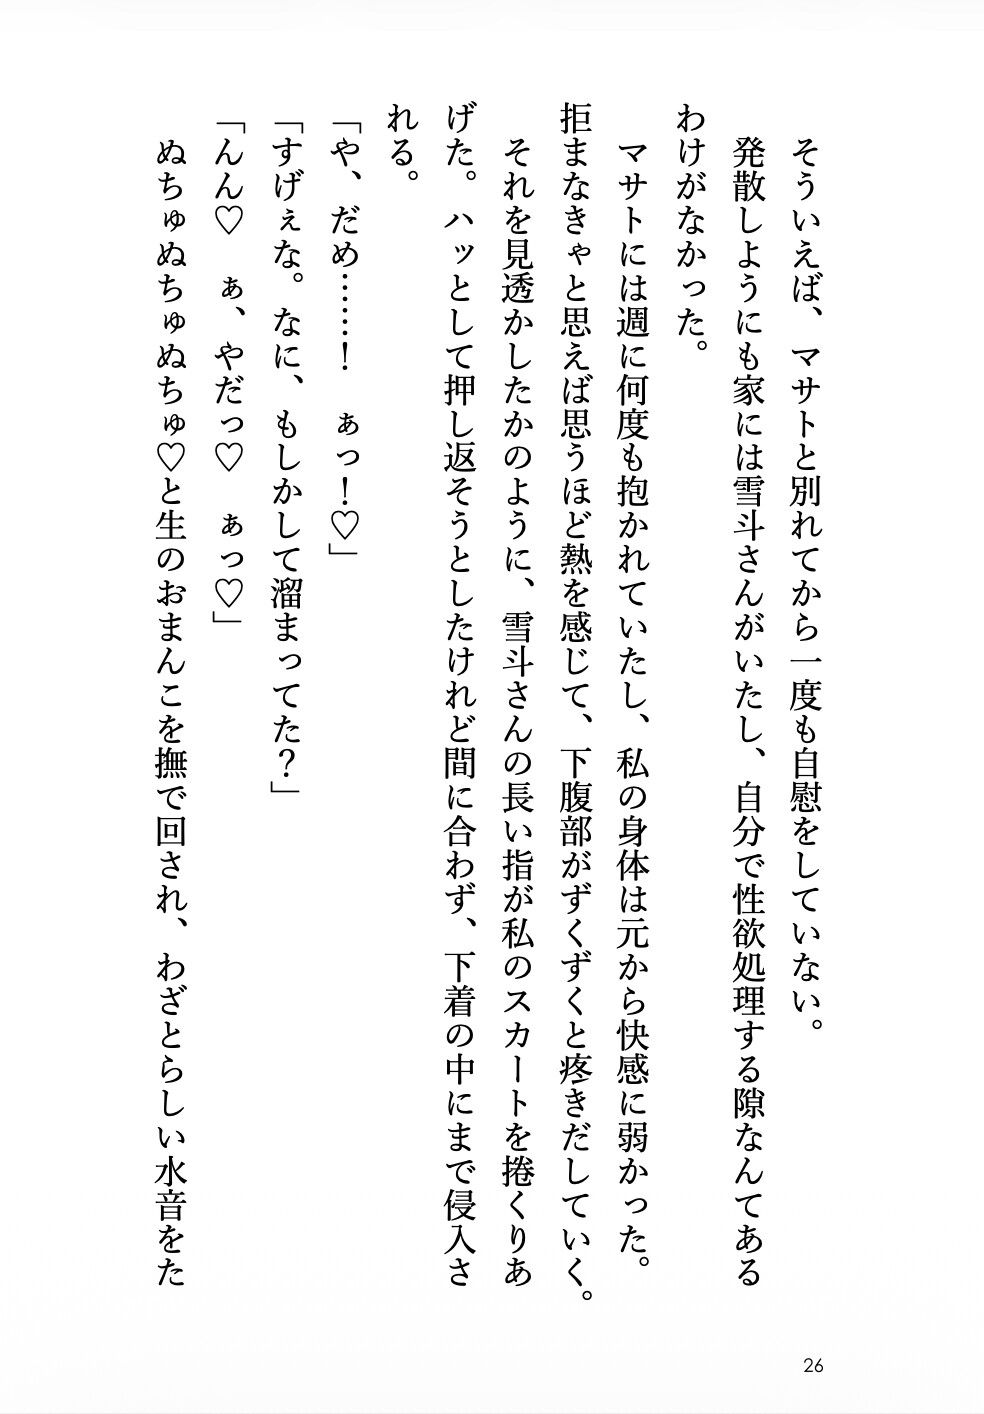 そういえば、マサトと別れてから一度も自慰をしていない。
発散しようにも家には雪斗さんがいたし、自分で性欲処理する隙なんてある
わけがなかった。
マサトには週に何度も抱かれていたし、私の身体は元から快感に弱かった。
拒まなきゃと思えば思うほど熱を感じて、下腹部がずくずくと疼きだしていく。
それを見透かしたかのように、雪斗さんの長い指が私のスカートを捲くりあ
げた。ハッとして押し返そうとしたけれど間に合わず、下着の中にまで侵入さ
れる。
「や、だめ……！　ぁっ！♡」
「すげぇな。なに、もしかして溜まってた？」
「んん♡　ぁ、やだっ♡　ぁっ♡」
ぬちゅぬちゅぬちゅ♡と生のおまんこを撫で回され、わざとらしい水音をた
26